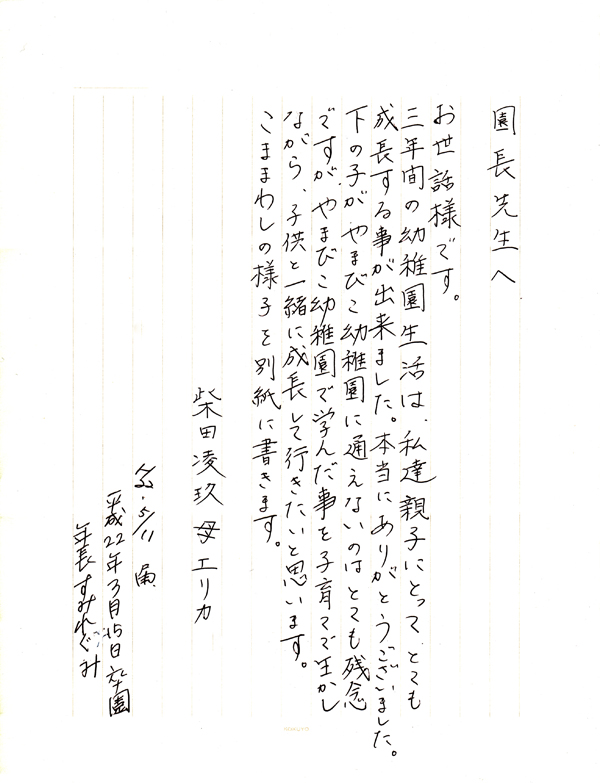 園長先生へ
お世話様です。
三年間の幼稚園生活は、私達親子にとって、とても
成長する事が出来ました。本当にありがとうございました。
下の子が、やまびこ幼稚園に通えないのはとても残念
ですが、やまびこ幼稚園で学んだ事を子育てで生かし
ながら、子供と一緒に成長して行きたいと思います。
こままわしの様子を別紙に書きます。
柴田凌玖 母 エリカ
22.5/11 届
平成22年3月15日卒園
年長すみれぐみ